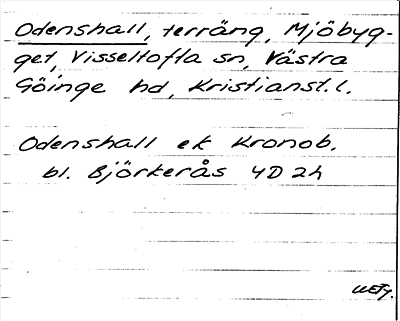 Odenshall, terräng, Mjöbyg-
get, Visseltofta sn, Västra
Göinge hd, Kristianst. l.
Odenshall ek Kronob.
bl. Björkerås 4D 2h